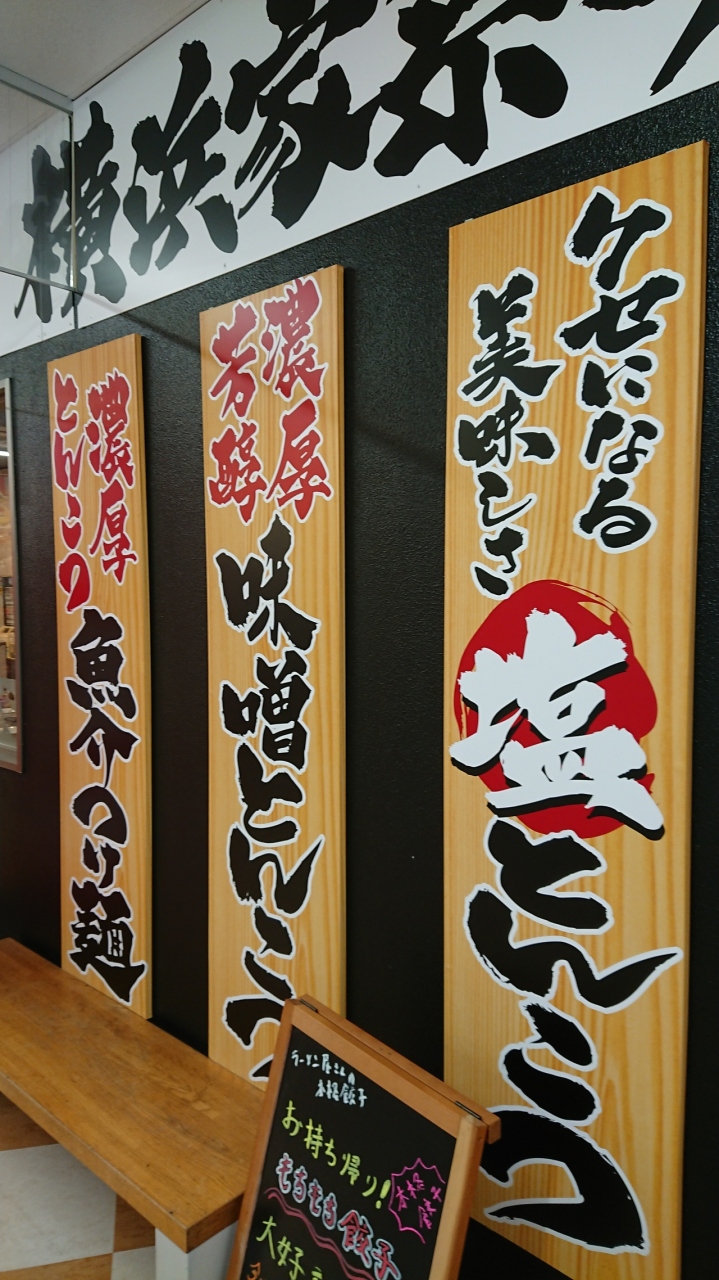 横浜家系
クセになる
美味しさ
塩とんこつ
濃厚
芳醇
味噌とんこつ
濃厚
とんこつ
魚介つけ麺
ラーメン屋さんの
本格餃子
お持ち帰り!
もちもち餃子
大好